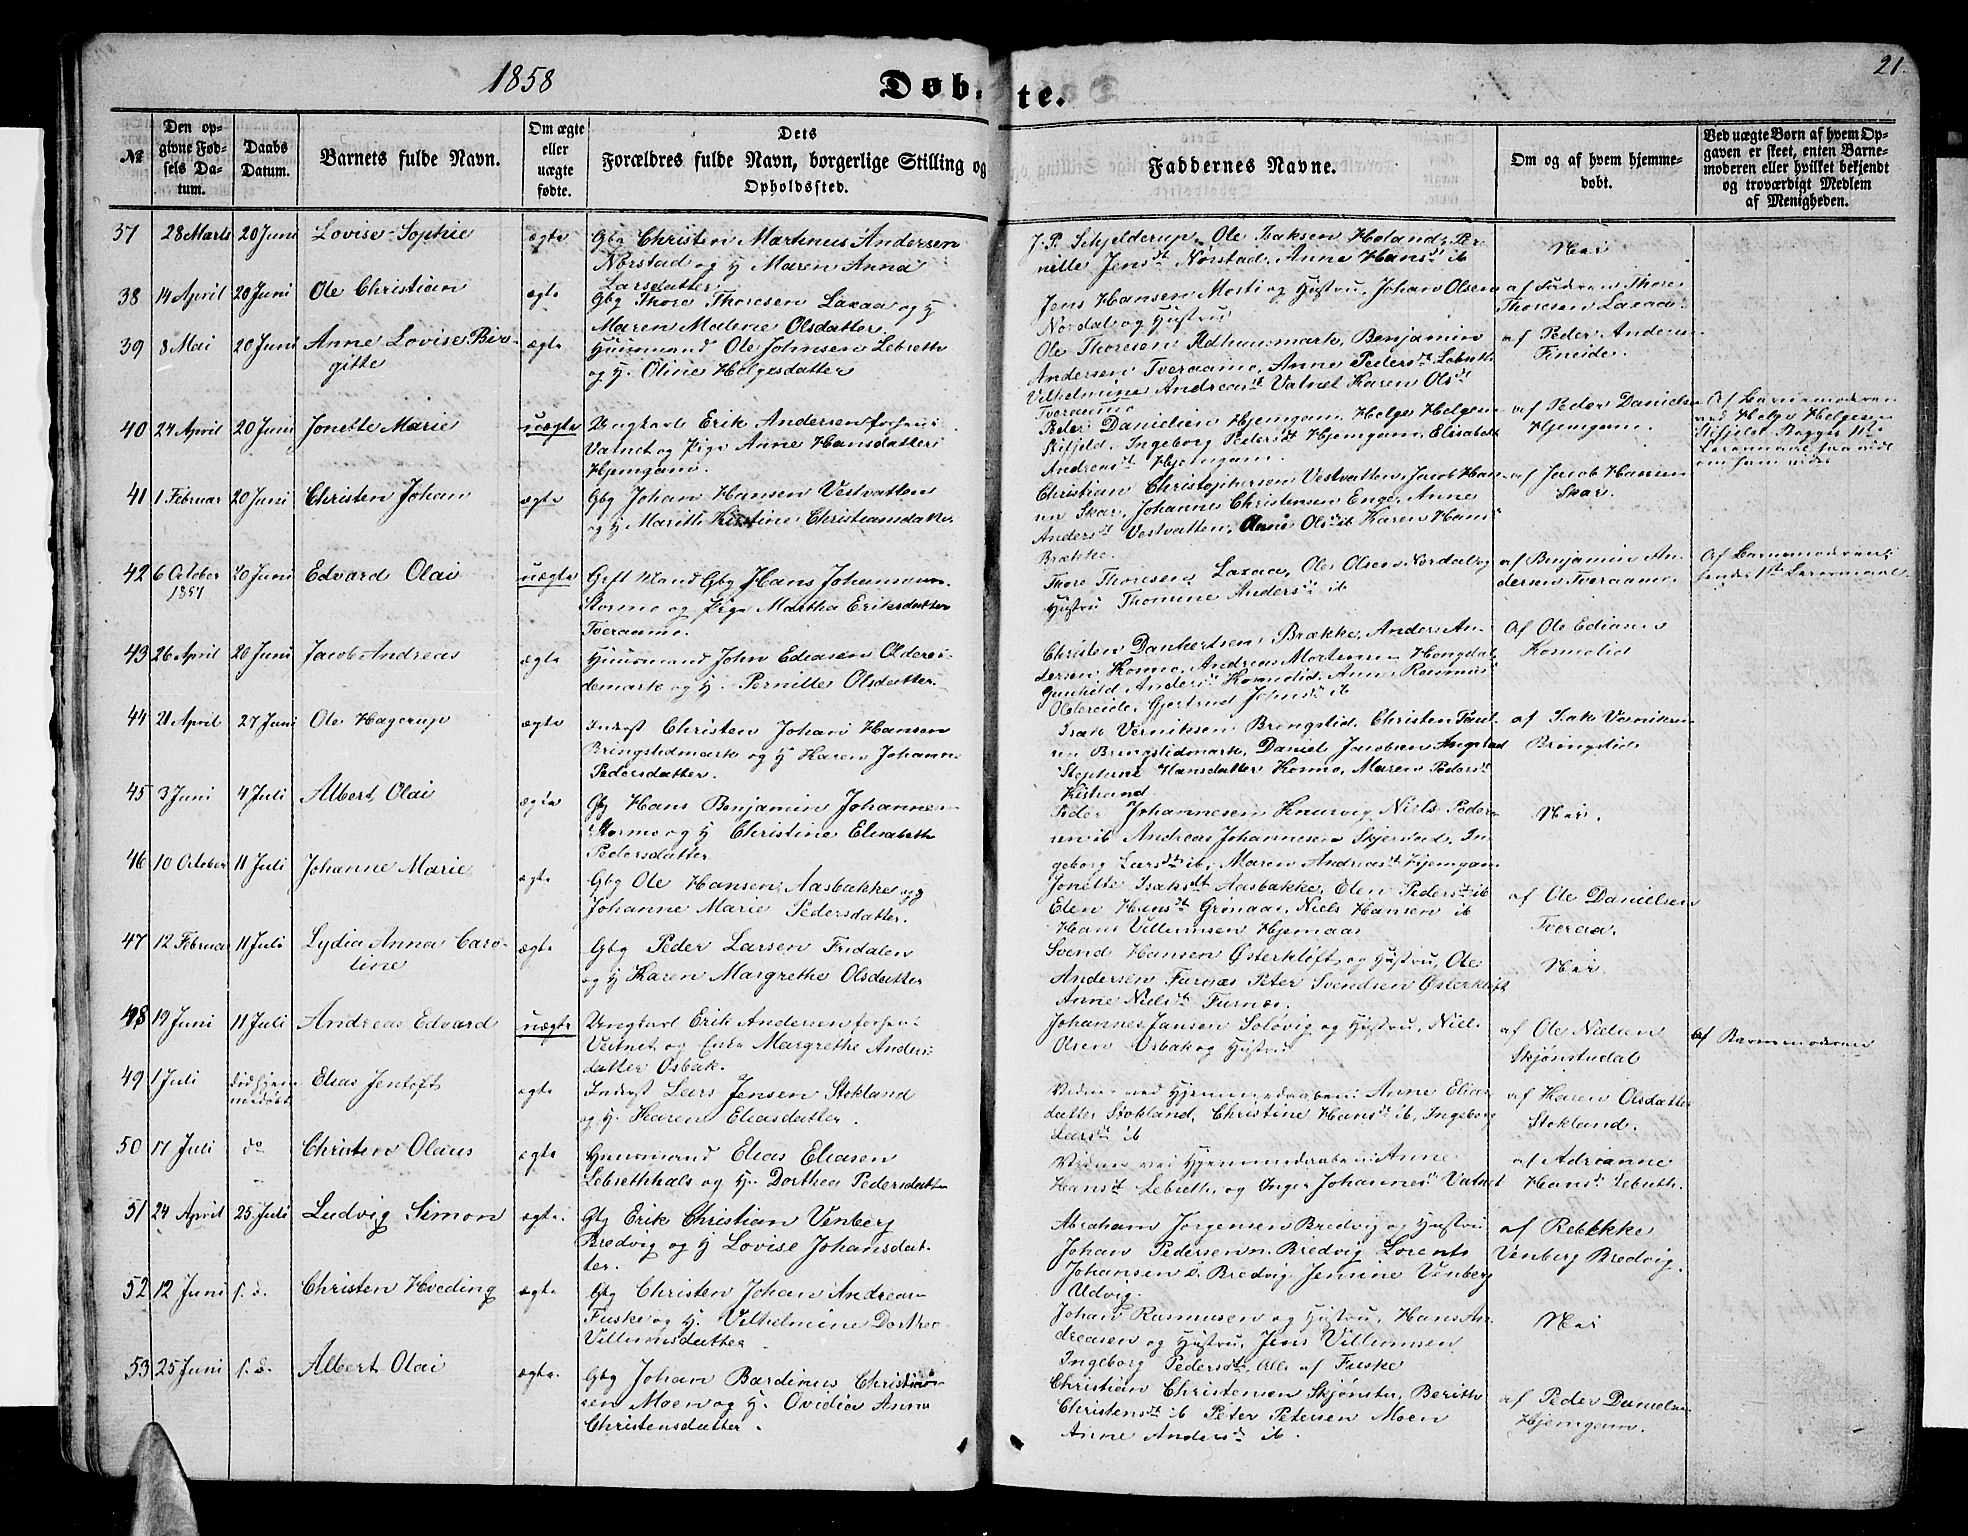 1858
Døbte.
21.
№
Den opgivne Fødsels Datum.
Daabs Datum.
Barnets fulde Navn.
Om ægte eller uægte fødte.
Dets Forældres fulde Navn, borgerlige Stilling og Opholdssted.
Faddernes Navne.
Om og af hvem hjemmedøbt.
Ved uægte Børn af hvem Opgaven er skeet, enten Barnemoderen eller hvilket bekjendt og troværdigt Medlem af Menigheden.
37 28 Marts 20 Juni Lovise Sophie ægte Gbg Christen Martinus Andersen
Nørstad og H Maren Anna
Larsdatter
J. P. Schjelderup, Ole Isaksen Holand, Per-
nille Jensdt Nørstad, Anne Hansdt ib
Nei
38 14 April 20 Juni Ole Christian ægte Gbg Thore Thoresen Laxaa og H
Maren Malene Olsdatter
Jens Hansen Mosti og Hustru, Johan Olsen
Nordal og Hustru
af Faderen Thore
Thoresen Laxaa
39 8 Mai 20 Juni Anne Lovise Bir-
gitte
ægte Huusmand Ole Johnsen Lebreth
og H. Oline Helgesdatter
Ole Thoresen Rdhausmark, Benjamin
Andersen Tveraamo, Anne Pedersdt Lebreth
Vilhelmine Andreasdt Vatnet Karen Olsdt
Tveraamo
af Peder Anders
Fineide
40 24 April 20 Juni Jonette Marie uægte Ungkarl Erik Andersen forhen i
Vatnet og Pige Anne Hansdatter
Hjemgam.
Peder Danielsen Hjemgam, Helge Helgesen
Stifjeld, Ingeborg Pedersdt Hjemgam, Elisabeth
Andreasdt Hjemgam
af Peder Daniels
Hjemgam.
Af Barnemoderen
ved Helge Helgesen
Stifjeld. Begges 1ste
Leiermaal saa vidt
om ham vides
41 1 Februar 20 Juni Christen Johan ægte Gbg Johan Hansen Vestvatten
og H Marith Kirstine Christiansdatter
Christian Christophersen Vestvatten, Jacob Han-
sen Skar, Johannes Christensen Enge, Anne
Andersdt Vestvatten, Anne Olsdt ib Karen Hansdt
Brække.
af Jacob Hansen
Skar.
42 6 October
1857
20 Juni Edvard Olai uægte Gift Mand Gbg Hans Johannesen
Stormo og Pige Martha Eriksdatter
Tveraamo.
Thore Thoresen Laxaa, Ole Olsen Nordal og
Hustru Thomine Andersdt ib
af Benjamin An-
dersen Tveraamo.
Af Barnemoderen;
hendes 1ste Leiermaal.
43 26 April 20 Juni Jacob Andreas ægte Huusmand John Ediasen Olderei-
demark og H. Pernille Olsdatter.
Christen Dankertsen Brække, Anders An-
dersen Kosmo, Andreas Mortensen Hongdal,
Gunhild Andersdt Kosmolid, Anne Rasmusdt
Oldereide, Gjertrud Johnsdt ib
Af Ole Ediasen
Kosmolid
44 21 April 27 Juni Ole Hagerup ægte Inderst Christen Johan Hansen
Bringslidmark og H Karen Johanne
Pedersdatter.
Isak Verniksen Bringslid, Christen Paul-
sen Bringslidmark, Daniel Jacobsen Angstad
Stephine Hansdatter Kosmo, Maren Pedersdt
Kistrand
af Isak Verniksen
Bringslid
45 3 Juni 4 Juli Albert Olai ægte Gbg Hans Benjamin Johannes-
Stormo og H Christine Elisabeth
Pedersdatter
Peder Johannesen Knarvig, Niels Peder-
sen ib Andreas Johannesen Skjerstad, In-
geborg Larsdt ib, Maren Andreasdt Hjemgam
Nei.
46 10 October 11 Juli Johanne Marie ægte Gbg Ole Hansen Aasbakke og H
Johanne Marie Pedersdatter.
Jonette Isaksdt Aasbakke, Elen Pedersdt ib
Elen Hansdt Grønaas, Niels Hansen ib
Hans Villumsen Hjemaas
af Ole Danielsen
Tveraa.
47 12 Februar 11 Juli Lydia Anna Caro-
line
ægte Gbg Peder Larsen Fridalen
og H Karen Margrethe Olsdatter
Svend Hansen Østerkløft og Hustru, Ole
Andersen Furnæs Peter Svendsen Østerkløft
Anne Nielsdt Furnæs.
Nei
48 19 Juni 11 Juli Andreas Edvard uægte Ungkarl Erik Andersen forhen i
Vatnet og Enke Margrethe Anders-
datter Osbak.
Johannes Jansen Soløvig og Hustru, Niels
Olsen Osbak og Hustru
af Ole Nielsen
Skjønstudal
af Barnemoderen
49 1 Juli død hjem-
medøbt
Elias Jentoft ægte Inderst Lars Jensen Stokland
og H. Karen Eliasdatter.
Vidner ved Hjemmedaaben: Anne Elias-
datter Stokland, Christine Hansdt ib, Ingeborg
Larsdt ib
af Karen Olsdatter
Stokland.
50 17 Juli do Christen Olaus ægte Huusmand Elias Eliasen
Lebrethhals og H. Dorthea Pedersdatter
Vidner ved Hjemmedaaben: Anne
Hansdt Lebreth, og Inger Johannesdt Vatnet
af Adrianne
Hansdt Lebreth.
51 24 April 25 Juli Ludvig Simon ægte. Gbg Erik Christian Venberg
Bredvig og H Lovise Johansdat-
ter.
Abraham Jørgensen Bredvig og Hustru
Johan Pedersen Bredvig Lorents
Johansen Bredvig Jensine Venberg
Udvig.
af Rebekke
Venberg Bredvig.
52 12 Juni s. d. Christen Hveding ægte Gbg Christen Johan Andreas-
Fuske og H. Vilhelmine Dorthea
Villumsdatter
Johan Rasmussen og Hustru, Hans An-
dreasen og Hustru, Jens Villumsen
Ingeborg Pedersdt, Alle af Fuske
Nei
53 25 Juni s. d. Albert Olai ægte. Gbg Johan Bardinus Christian-
sen Moen og H. Ovidia Anna
Christensdatter.
Christian Christensen Skjønstu, Berith
Christensdt ib Peter Petersen Moen
Anne Andersdt ib.
af Peder Danielsen
Hjemgam.